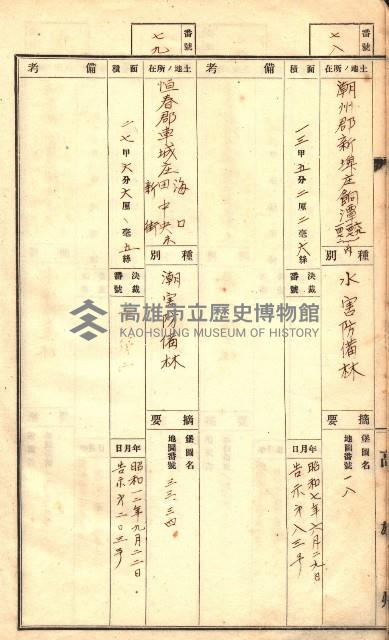 番號
七八
土地ノ所在
潮州郡新埤庄餉潭
面積
一三甲五分二厘二毫六絲
備考
種別
水害防備林
決裁番號
摘要
堡圖名
地圖番號 一八
年月日
昭和七年六月二九日
告示第八三号
番號
七九
土地ノ所在
恒春郡車城庄田中央
海口
新街
面積
二七甲六分六厘、毫五絲
備考
種別
潮害防備林
決裁番號
摘要
堡圖名
地圖番號 三三.三四
年月日
昭和一二年九月二二日
告示第二〇三号
高雄市立歷史博物館
KAOHSIUNG MUSEUM OF HISTORY